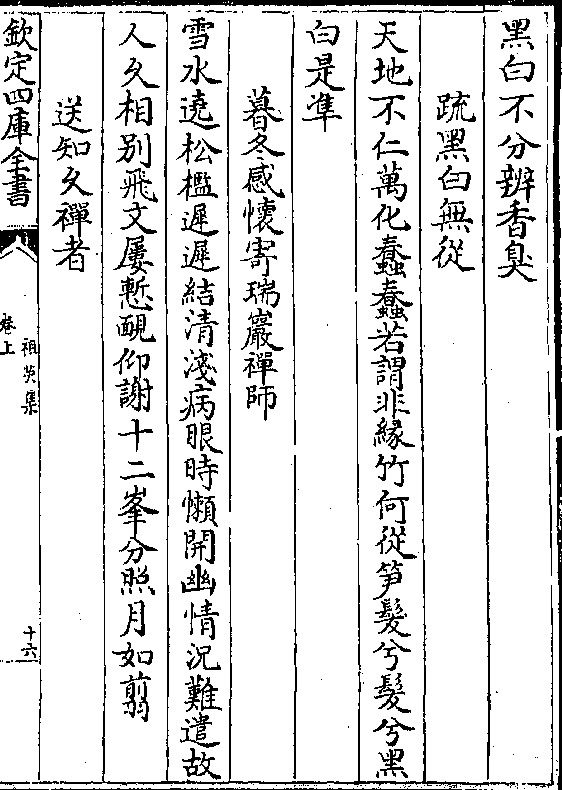 黑白不分辨香臭
䟽黑白無從
天地不仁萬化蠢蠢若謂非緣竹何從笋髮兮髮兮黑
白是準
暮冬感懷寄瑞巖禪師
雪水遶松檻遲遲結清淺病眼時懶開幽情況難遣故
人久相別飛文屢慙靦仰謝十二峯分照月如翦
送知久禪者
欽定四庫全書
祖英集
卷上
十六